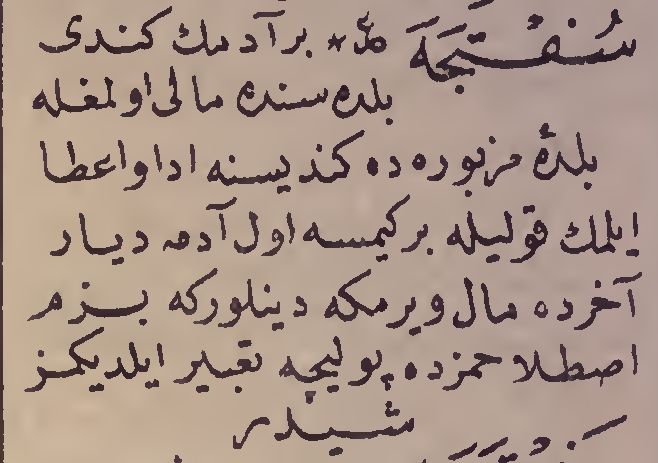 سُفْتَجَة * بر آدمك كندی
بلده سنده مالی اولمغله
بلدۀ مزبوره ده كندیسنه ادا واعطا
ایلمك قولیله بركیمسه اول آدمه دیار
آخرده مال ویرمكه دینلوركه بزم
اصطلاحمزده پولیچه تعبیر ایلدیكمز
شیدر